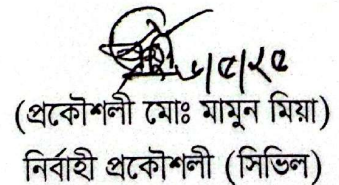 (প্রকৌশলী মোঃ মামুন মিয়া)
নির্বাহী প্রকৌশলী (সিভিল)